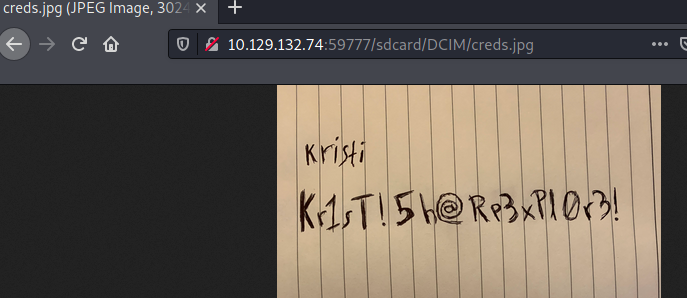 creds.jpg (JPEG Image, 302
10.129.132.74:59777/sdcard/DCIM/creds.jpg
kristi
Kr1sT!5h@Rp3xPl0r3!